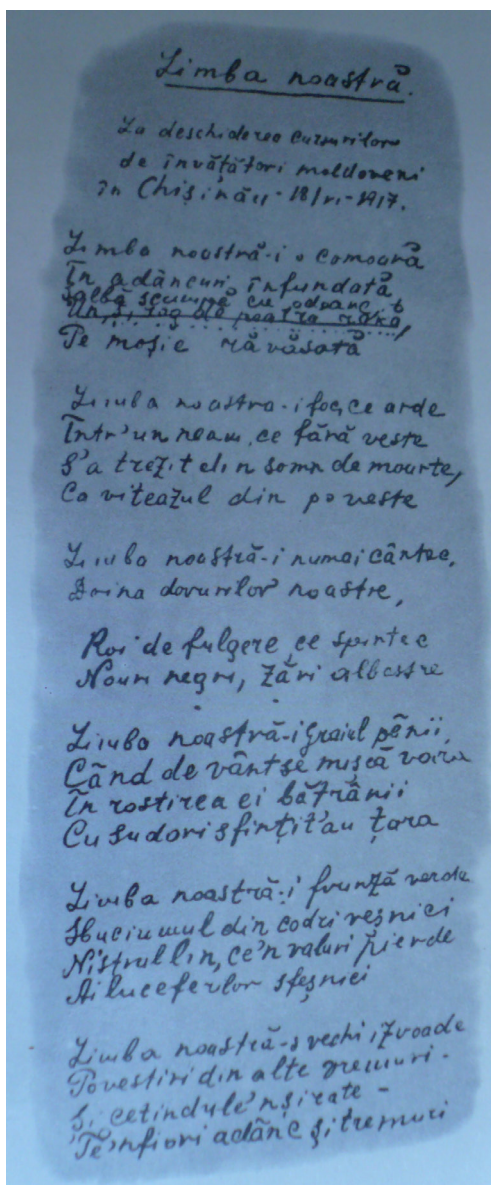 Limba noastră.
La deschiderea cursurilor
de învățători moldoveni
în Chișinău - 18/VI - 1917.
Limba noastră-i o comoară
În adâncuri înfundată
Salbă scumpă cu odoare
Un șirag de peatră rară,
Pe moșie răvăsată
Limba noastra-i foc, ce arde
Într'un neam, ce fără veste
S'a trezit din somn de moarte,
Ca viteazul din poveste
Limba noastră-i numai cântec,
Doina dorurilor noastre,
Roi de fulgere ce spintec
Nouri negri, zări albastre
Limba noastră-i graiul pênii,
Când de vânt se mișcă vara
În rostirea ei bătrânii
Cu sudori sfințit'au țara
Limba noastră-i frunză verde
Sbuciumul din codri veșnici
Nistrul lin, ce'n valuri pierde
Ai luceferilor sfeșnici
Limba noastră-s vechi izvoade
Povestiri din alte vremuri -
Și cetindu-le'nșirate -
Te'nfiori adânc și tremuri